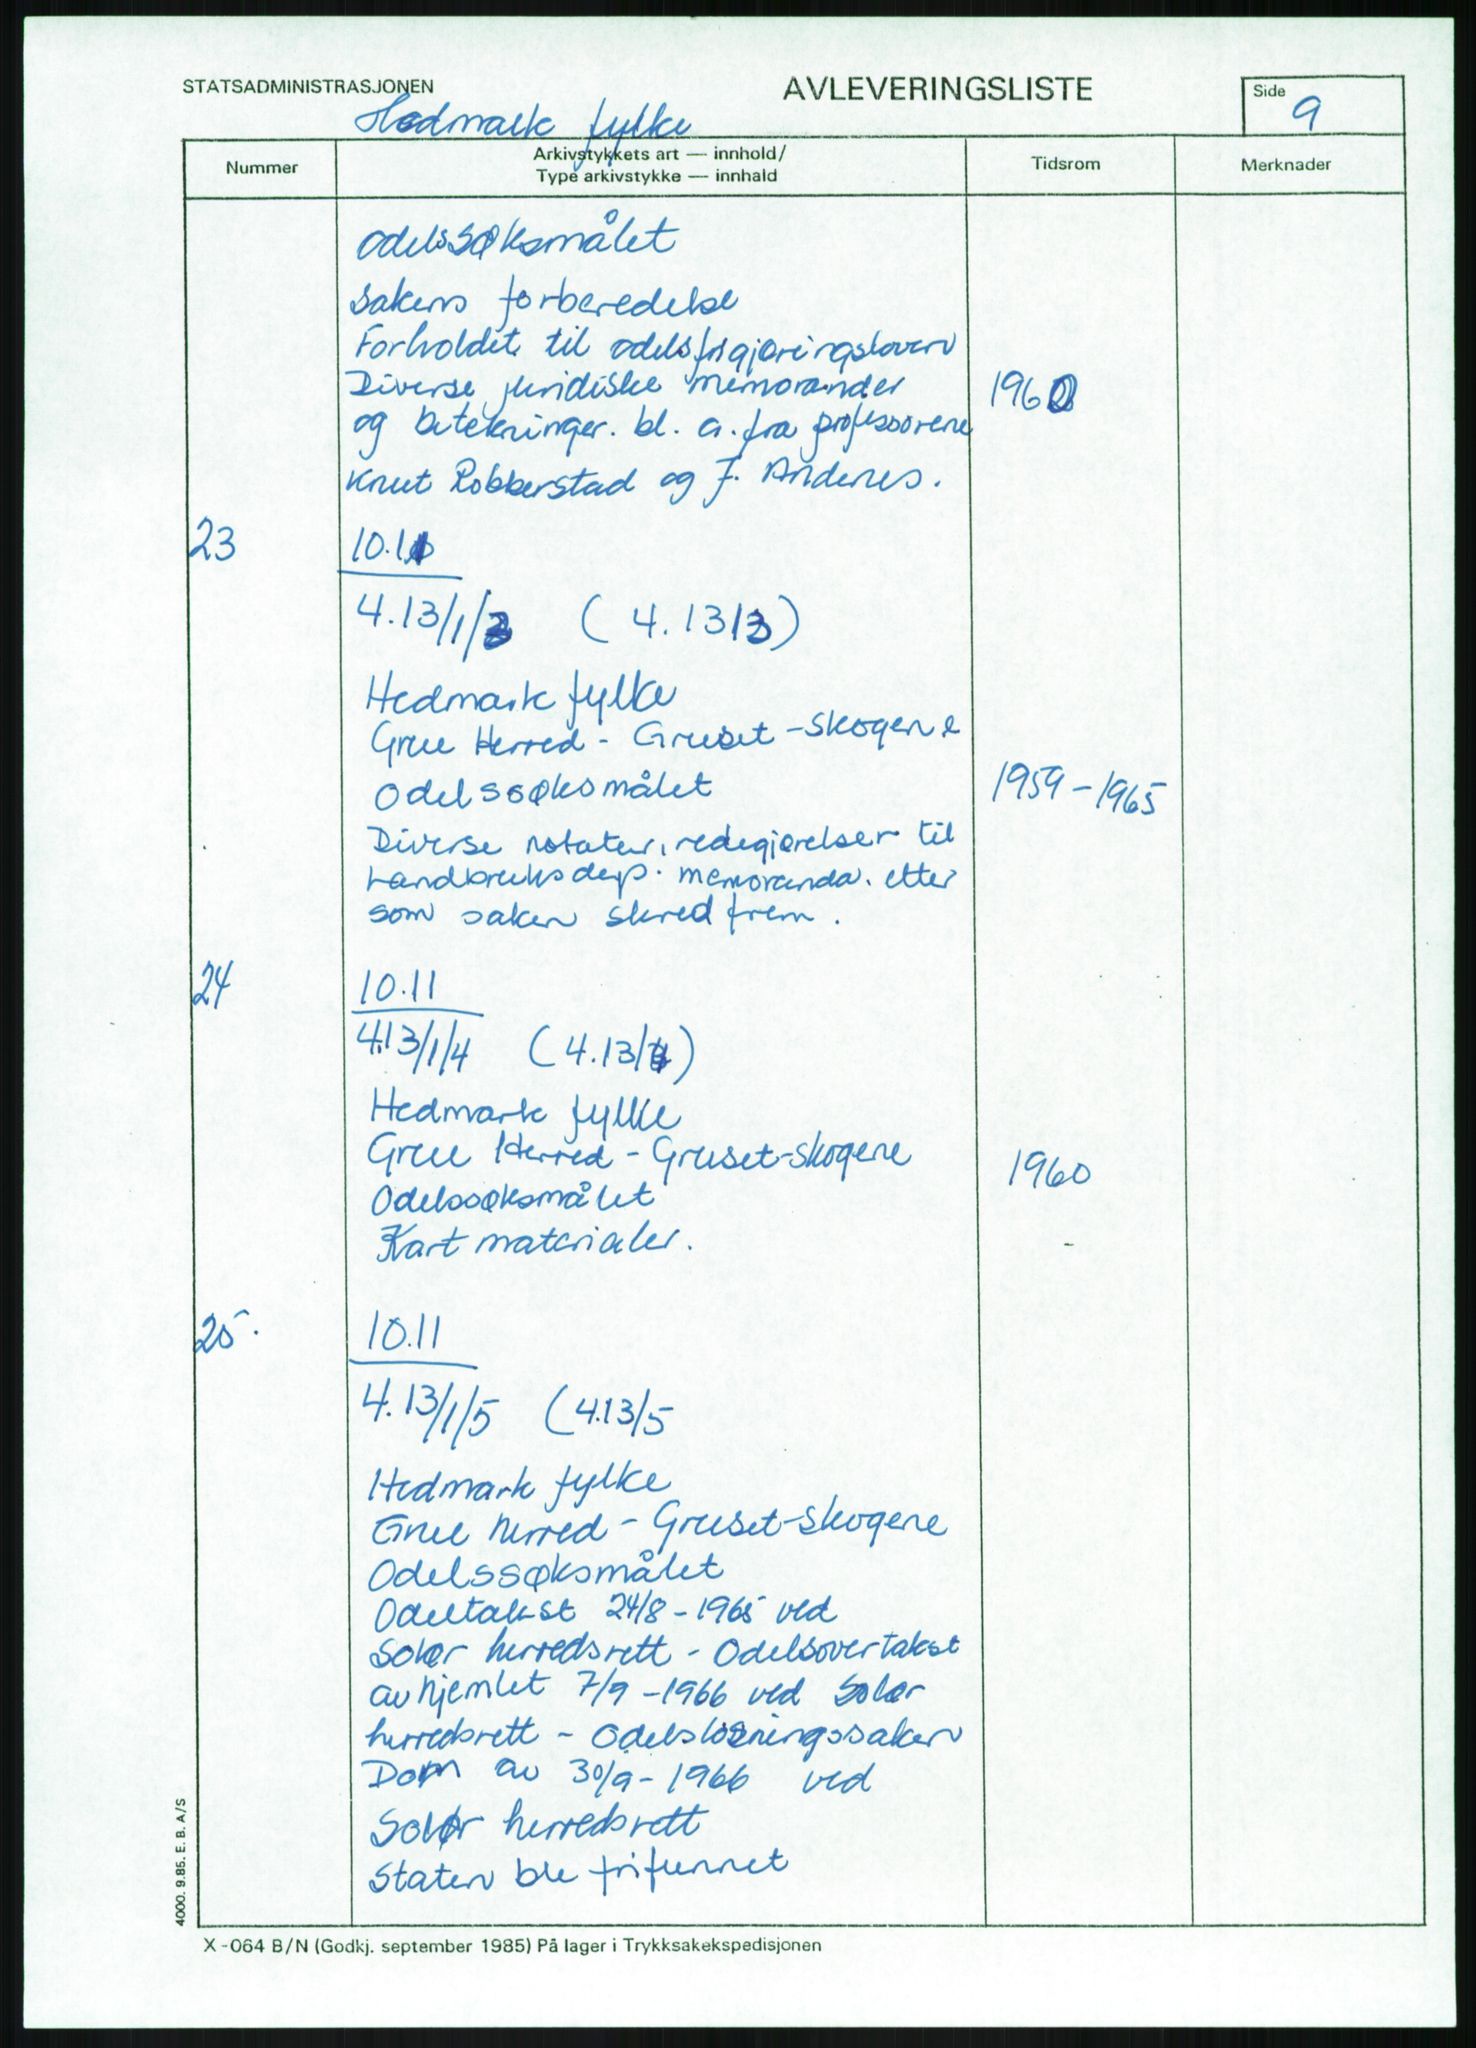 STATSADMINISTRASJONEN
AVLEVERINGSLISTE
Side
9
Hedmark fylke
Nummer
Arkivstykkets art — innhold/
Type arkivstykke — innhald
Tidsrom
Merknader
Odelssøksmålet
Sakens forberedelse
Forholdet til odelsfrigjøringsloven
Diverse juridiske memorander
1960
og betekninger. bl. a. fra professorene
Knut Robberstad og J. Andenes.
23
10.11
4.13/1/3 (4.13/3)
Hedmark fylke
Grue Herred - Gruset-skogene
Odelssøksmålet
1959-1965
Diverse notater, redegjørelser til
Landbruksdep. memoranda. etter
som saken skred frem.
24
10.11
4.13/1/4 (4.13/4)
Hedmark fylke
Grue Herred - Gruset-skogene
1960
Odelssøksmålet
Kart materialer.
25.
10.11
4.13/1/5 (4.13/5
Hedmark fylke
Grue herred - Gruset-skogene
Odelssøksmålet
Odeltakst 24/8-1965 ved
Solør herredsrett - Odelsovertakst
avhjemlet 7/9-1966 ved Solør
herredsrett - Odelsløsningssaken
Dom av 30/9-1966 ved
Solør herredsrett
Staten ble frifunnet
4000. 9.85. E. B. A/S
X-064 B/N (Godkj. september 1985) På lager i Trykksakekspedisjonen